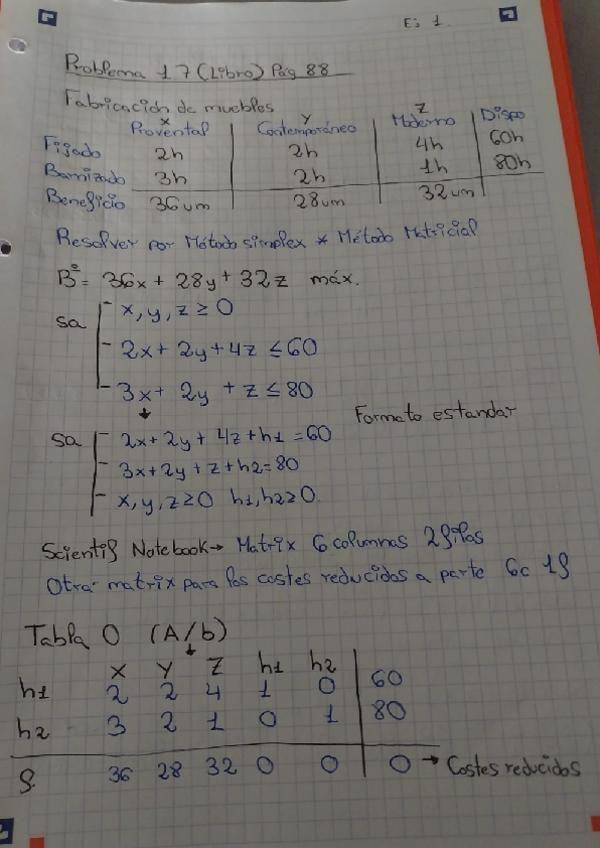 Ej 1.
Problema 17 (Libro) Pág 88
Fabricación de muebles
x y z
Provental Contemporáneo Moderno Dispo
Fijado 2h 2h 4h 60h
Barnizado 3h 2h 1h 80h
Beneficio 36um 28um 32um
Resolver por Método simplex * Método Matricial
Bº = 36x + 28y + 32z máx.
sa - x, y, z ≥ 0
- 2x + 2y + 4z ≤ 60
- 3x + 2y + z ≤ 80
Formato estandar
sa - 2x + 2y + 4z + h1 = 60
- 3x + 2y + z + h2 = 80
- x, y, z ≥ 0 h1, h2 ≥ 0.
Scientif Notebook → Matrix 6 columnas 2 filas
Otra matrix para los costes reducidos a parte 6c 1f
Tabla 0 (A/b)
↓
x y z h1 h2
h1 2 2 4 1 0 60
h2 3 2 1 0 1 80
f. 36 28 32 0 0 0 → Costes reducidos